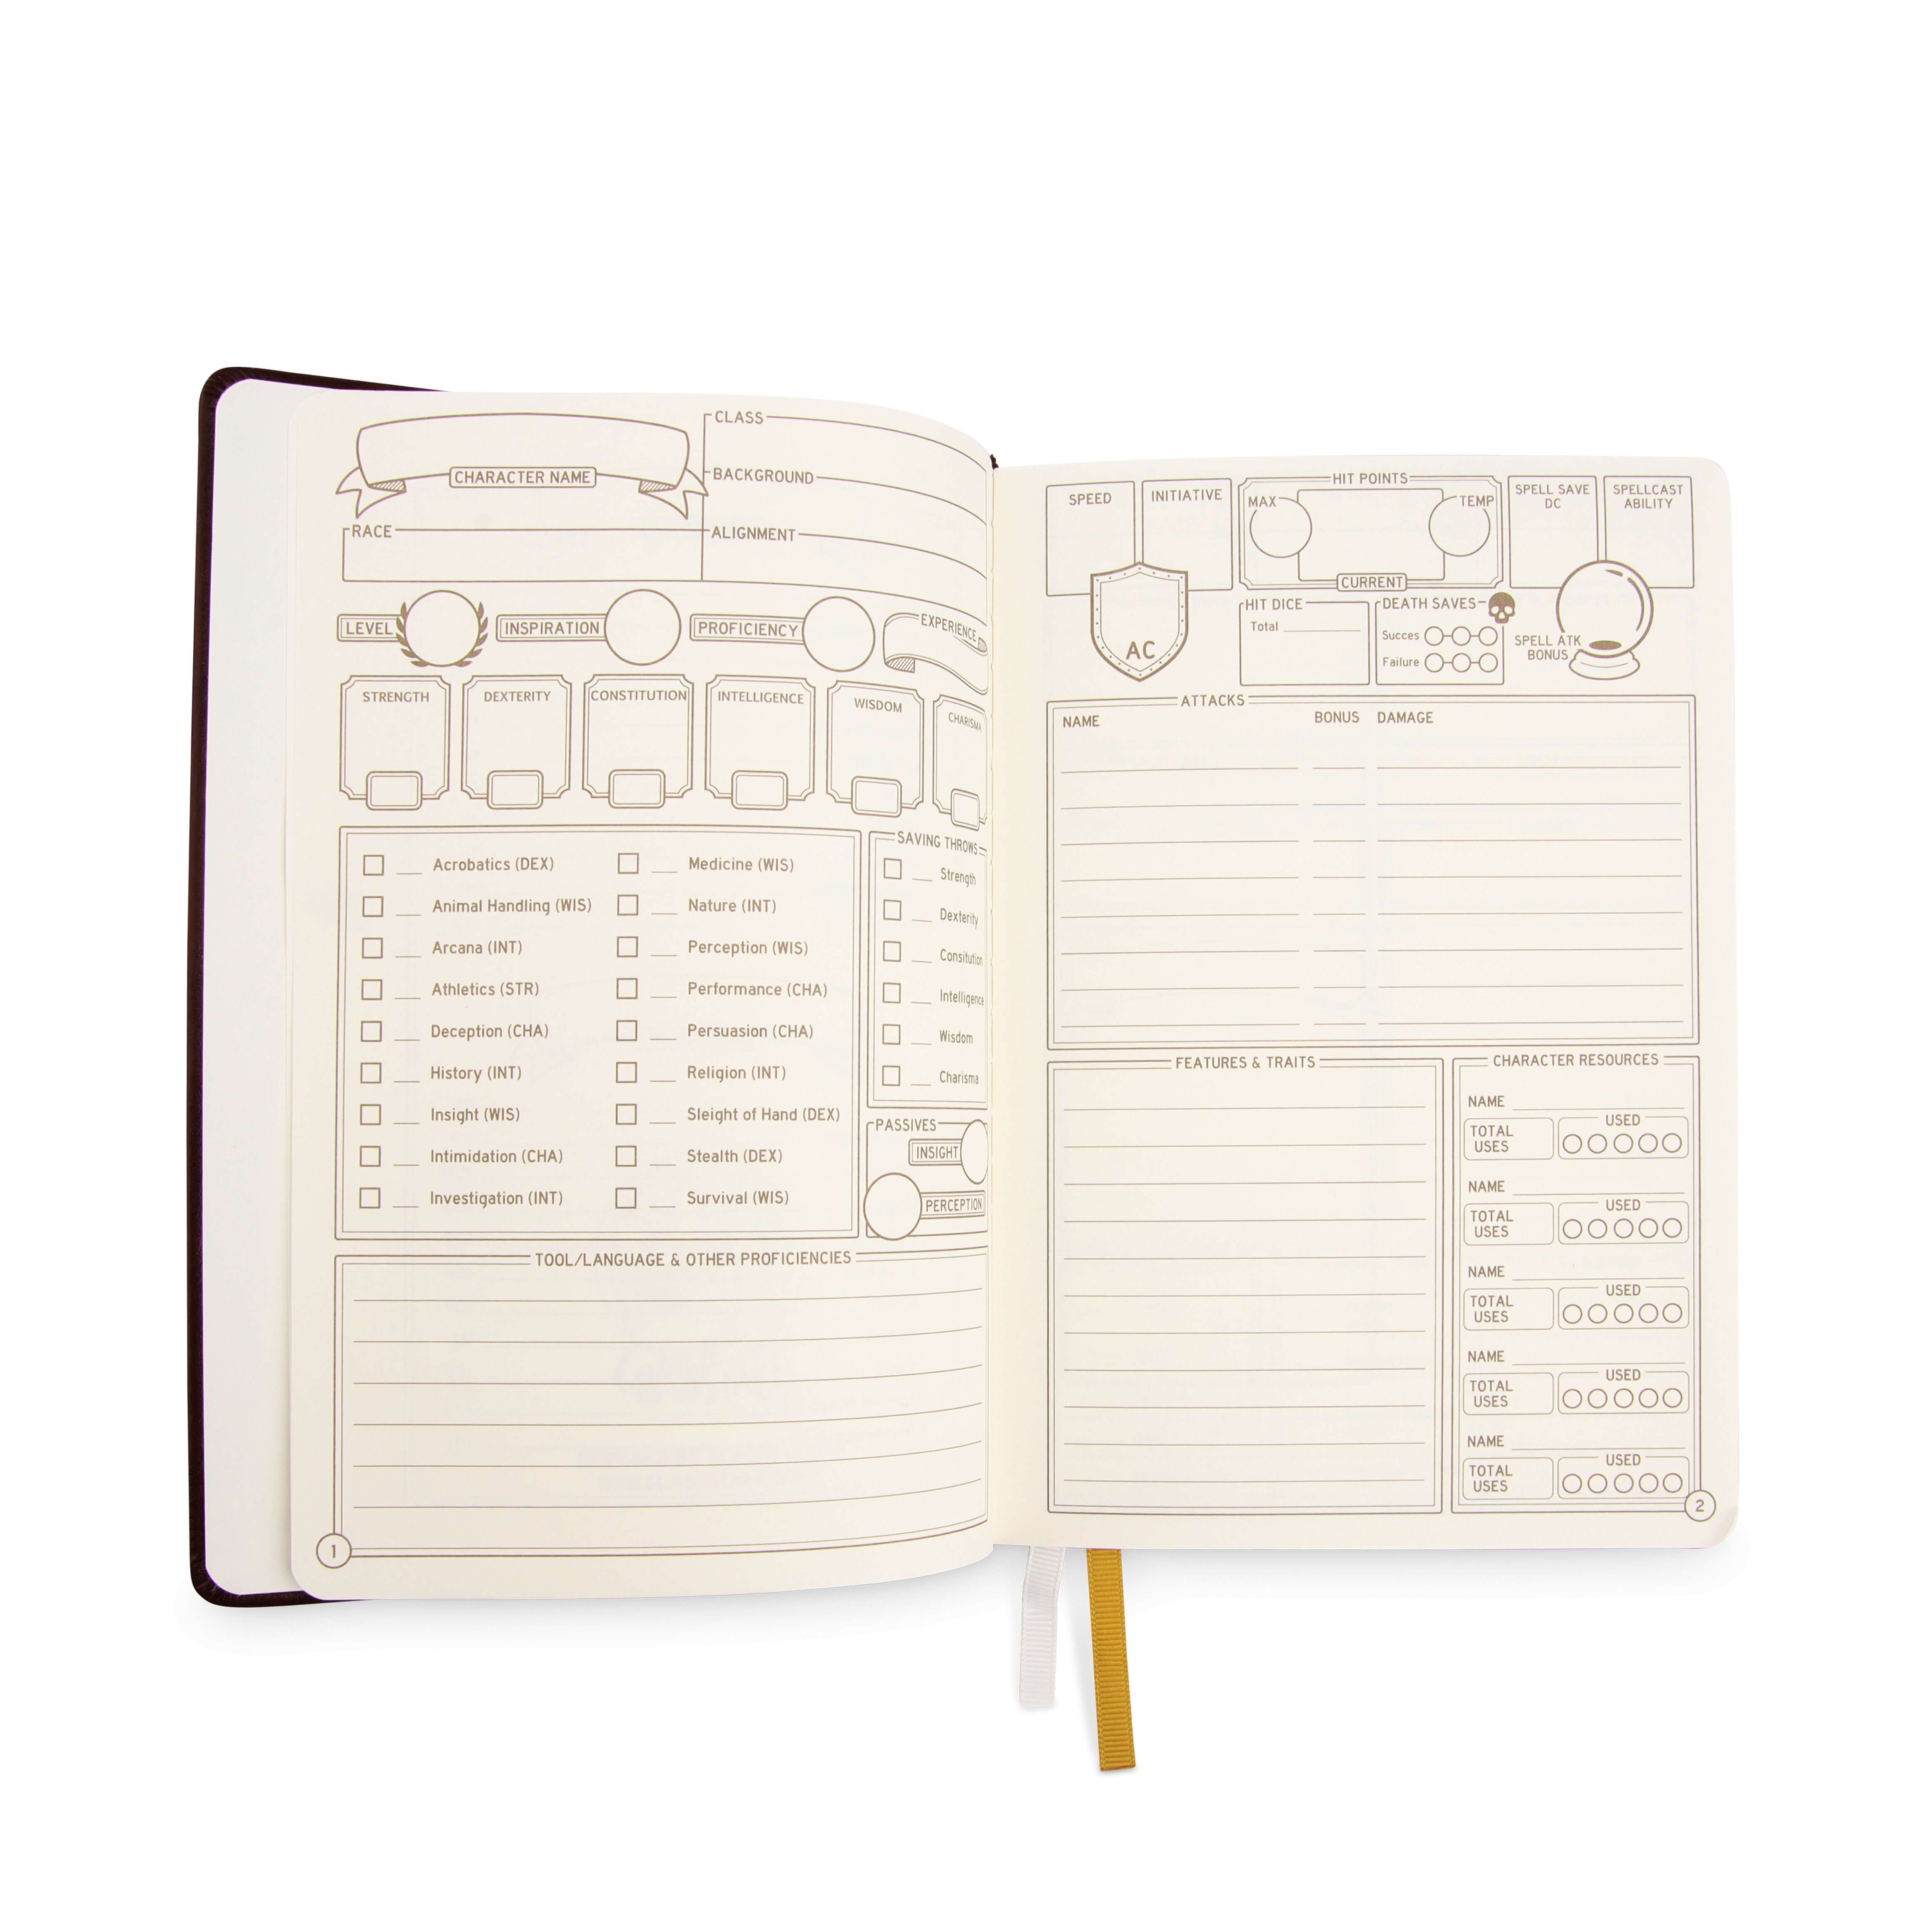 CHARACTER NAME
CLASS
BACKGROUND
RACE
ALIGNMENT
LEVEL
INSPIRATION
PROFICIENCY
EXPERIENCE
STRENGTH
DEXTERITY
CONSTITUTION
INTELLIGENCE
WISDOM
CHARISMA
Acrobatics (DEX)
Animal Handling (WIS)
Arcana (INT)
Athletics (STR)
Deception (CHA)
History (INT)
Insight (WIS)
Intimidation (CHA)
Investigation (INT)
Medicine (WIS)
Nature (INT)
Perception (WIS)
Performance (CHA)
Persuasion (CHA)
Religion (INT)
Sleight of Hand (DEX)
Stealth (DEX)
Survival (WIS)
SAVING THROWS
Strength
Dexterity
Consitution
Intelligence
Wisdom
Charisma
PASSIVES
INSIGHT
PERCEPTION
TOOL/LANGUAGE & OTHER PROFICIENCIES
1
SPEED
INITIATIVE
AC
HIT POINTS
MAX
TEMP
CURRENT
HIT DICE
Total
DEATH SAVES
Succes
Failure
SPELL SAVE
DC
SPELLCAST
ABILITY
SPELL ATK
BONUS
ATTACKS
NAME BONUS DAMAGE
FEATURES & TRAITS
CHARACTER RESOURCES
NAME
TOTAL
USES
USED
NAME
TOTAL
USES
USED
NAME
TOTAL
USES
USED
NAME
TOTAL
USES
USED
NAME
TOTAL
USES
USED
2